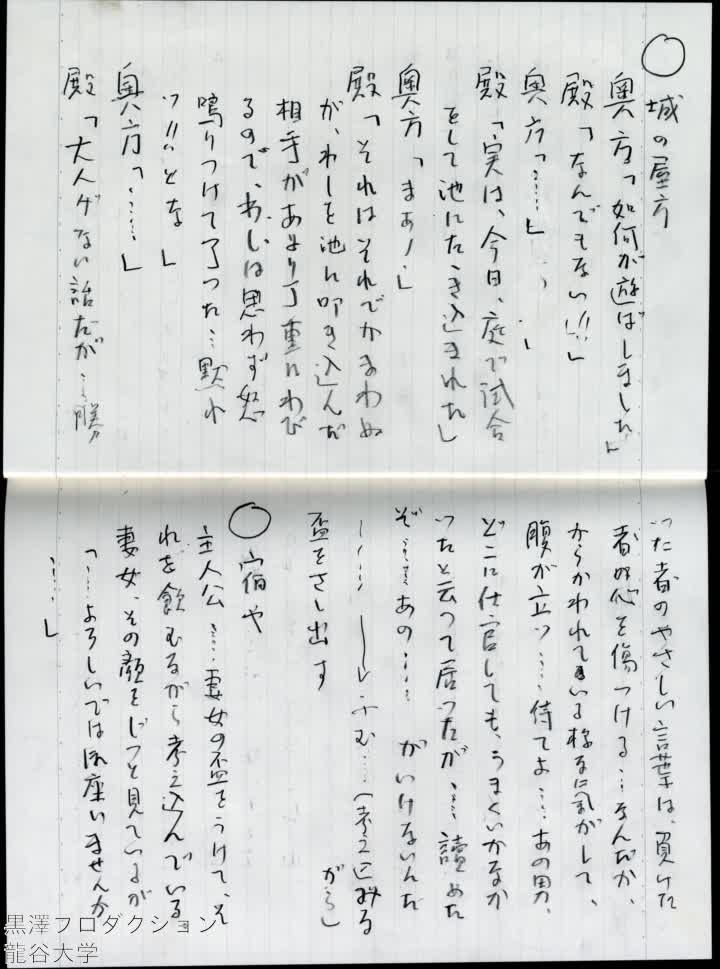 ○ 城の屋方
奥方「如何が遊ばしました」
殿「なんでもない!!」
奥方「……」
殿「実は、今日、庭で試合
をして池にたゝき込まれた」
奥方「まあ!」
殿「それはそれでかまわぬ
が、わしを池に叩き込んだ
相手があまり丁重にわび
るので、わしは思わず怒
鳴りつけて了った…黙れ
ッ!!とな」
奥方「……」
殿「大人ゲない話だが…勝
った者のやさしい言葉は、負けた
者の心を傷つける…なんだか、
からかわれている様な気がして、
腹が立つ……待てよ……あの男、
どこに仕官しても、うまくいかなか
ったと云って居ったが、……詰めた
ぞ……あの… がいけないんだ
……」ふむ……(考えこみる
がら)
盃をさし出す
○ 宿や
主人公……妻女の盃をうけて、そ
れを飲むながら考え込んでいる
妻女、その顔をじっと見ているが
「……よろしいではほ座いませんか
……」
黒澤プロダクション
龍谷大学